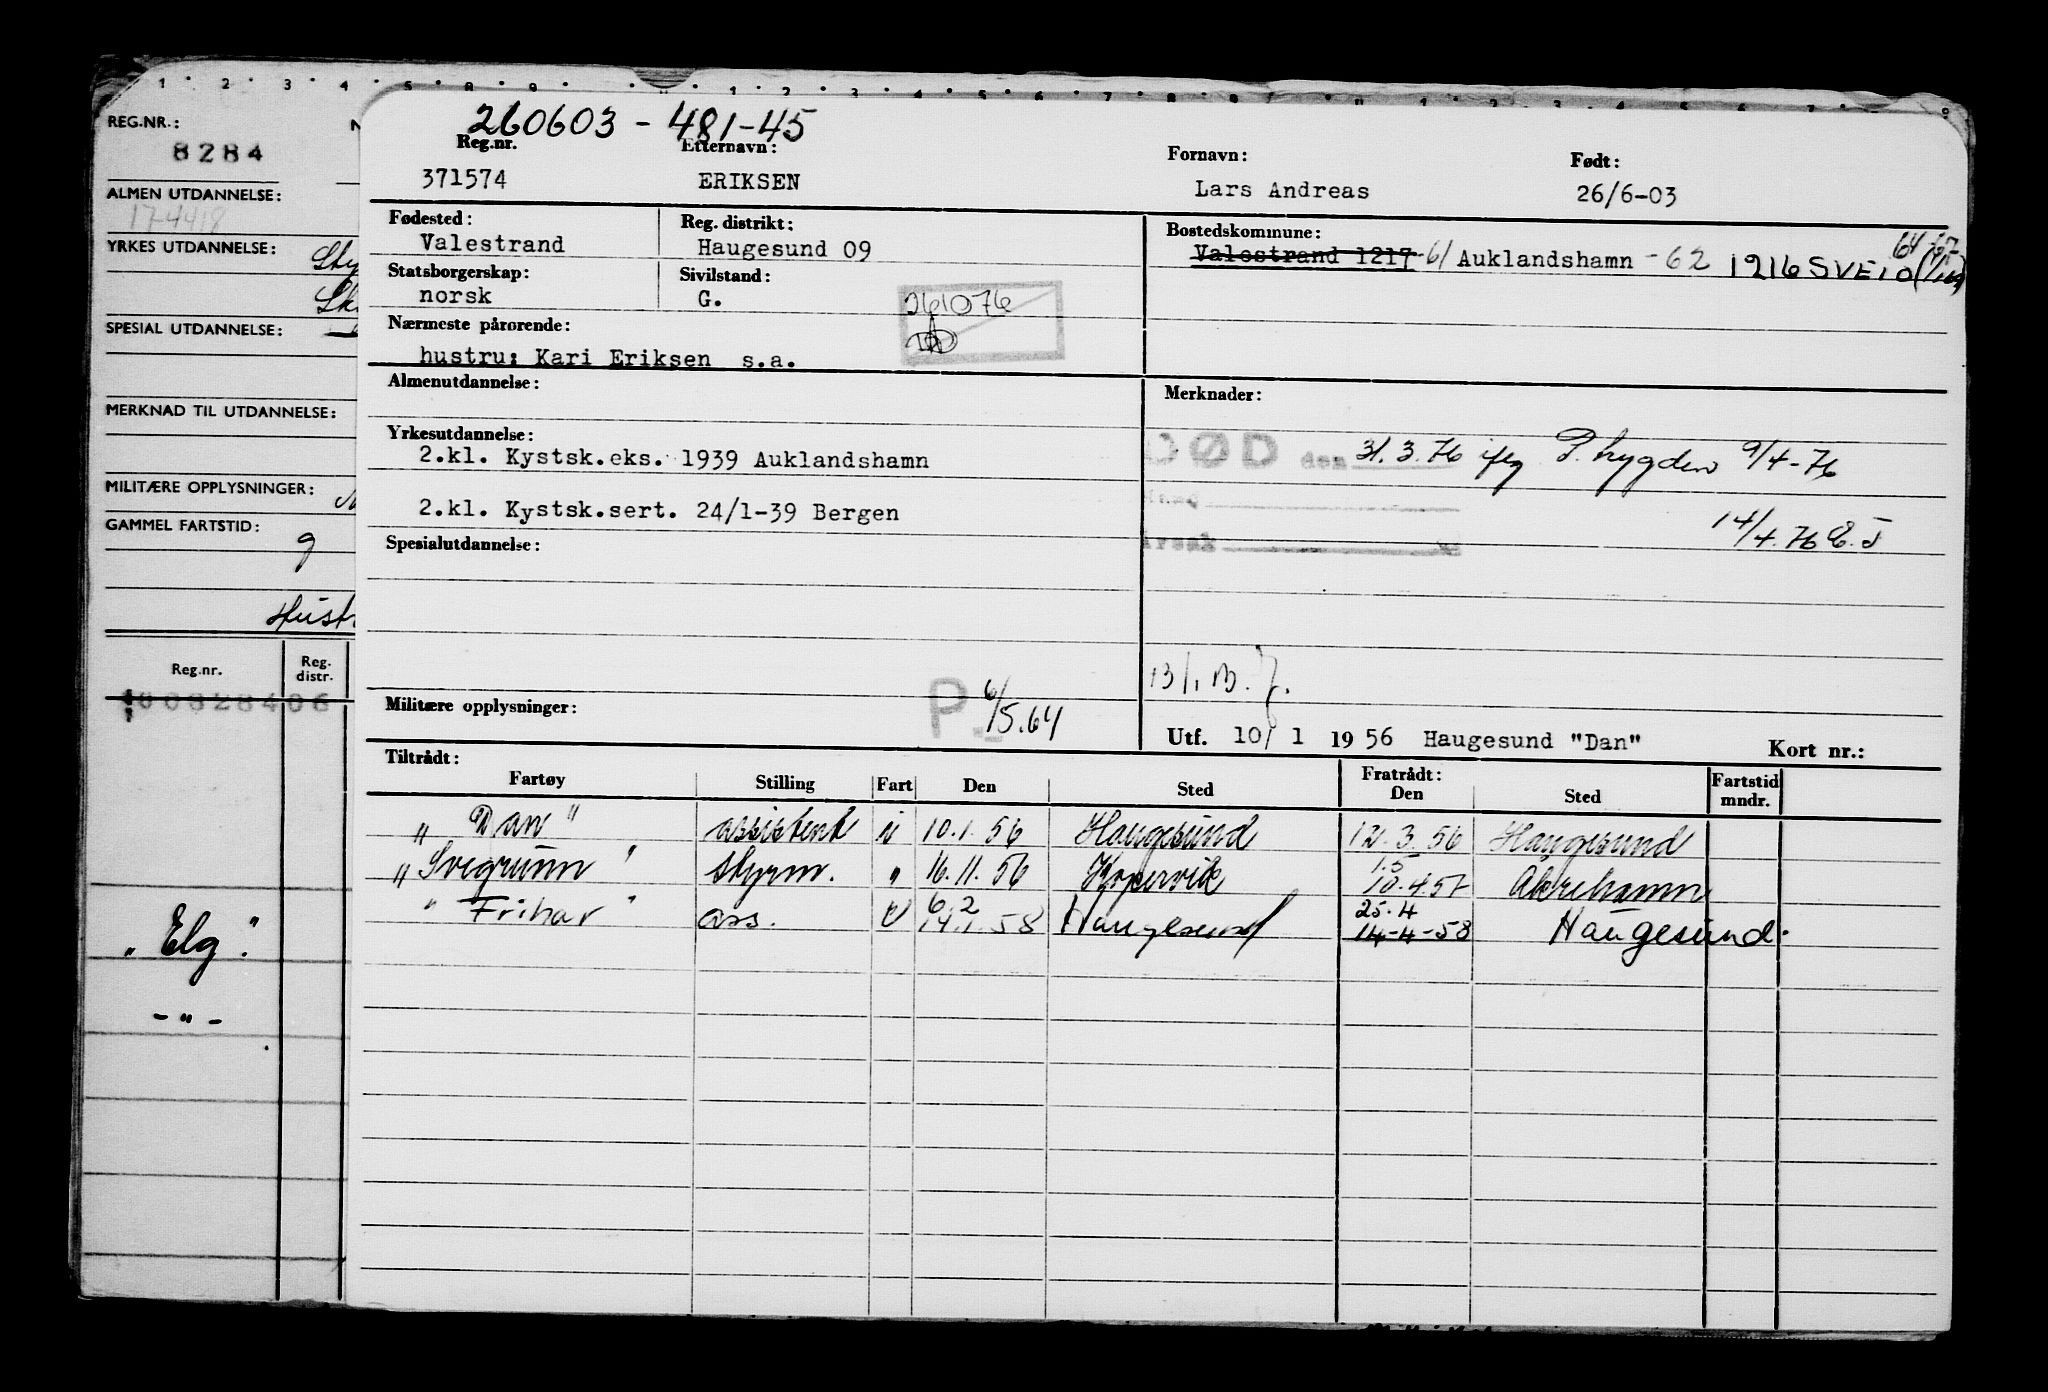 REG.NR.:
8284
ALMEN UTDANNELSE:
174418
YRKES UTDANNELSE:
SPESIAL UTDANNELSE:
MERKNAD TIL UTDANNELSE:
MILITÆRE OPPLYSNINGER:
GAMMEL FARTSTID:
g
Hust
Reg.nr. Reg. distr.
"Elg".
- " -
260603 - 481-45
Reg.nr. Etternavn: Fornavn: Født:
371574 ERIKSEN Lars Andreas 26/6-03
Fødested: Reg. distrikt: Bostedskommune:
Valestrand Haugesund 09 Valestrand 1217-61 Auklandshamn -62 1216 SVEIO
Statsborgerskap: Sivilstand:
norsk G.
261076
Nærmeste pårørende:
hustru: Kari Eriksen s.a.
Almenutdannelse: Merknader:
Yrkesutdannelse:
2.kl. Kystsk.eks. 1939 Auklandshamn
DØD den 31.3.76 ifg P.trygden 9/4-76
2.kl. Kystsk.sert. 24/1-39 Bergen
14/4.76 E.J
Spesialutdannelse: Årsak
Militære opplysninger: P. 6/5.64
Utf. 10/ 1 1956 Haugesund "Dan" Kort nr.:
Tiltrådt: Fratrådt:
Fartøy Stilling Fart Den Sted Den Sted Fartstid mndr.
"Dan" assistent u 10.1.56 Haugesund 12.3.56 Haugesund
1.5
"Svegrunn" styrm. " 16.11.56 Kopervik 10.4.57 Åkrehamn
6 2 25.4
"Frihav" ass. u 14.1.58 Haugesund 14-4-58 Haugesund.